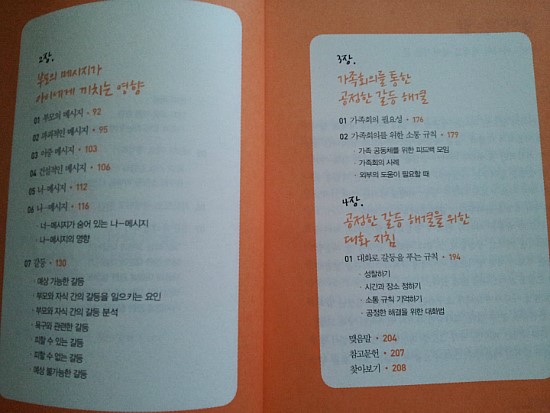 2장.
부모의 메시지가
아이에게 끼치는 영향
01 부모의 메시지 • 92
02 파괴적인 메시지 • 95
03 이중 메시지 • 103
04 건설적인 메시지 • 106
05 너-메시지 • 112
06 나-메시지 • 116
· 너-메시지가 숨어 있는 나-메시지
· 나-메시지의 영향
07 갈등 • 130
· 예상 가능한 갈등
· 부모와 자식 간의 갈등을 일으키는 요인
· 부모와 자식 간의 갈등 분석
· 욕구와 관련한 갈등
· 피할 수 있는 갈등
· 피할 수 없는 갈등
· 예상 불가능한 갈등
3장.
가족회의를 통한
공정한 갈등 해결
01 가족회의의 필요성 • 176
02 가족회의를 위한 소통 규칙 • 179
· 가족 공동체를 위한 피드백 모임
· 가족회의 사례
· 외부의 도움이 필요할 때
4장.
공정한 갈등 해결을 위한
대화 지침
01 대화로 갈등을 푸는 규칙 • 194
· 성찰하기
· 시간과 장소 정하기
· 소통 규칙 기억하기
· 공정한 해결을 위한 대화법
맺음말 • 204
참고문헌 • 207
찾아보기 • 208